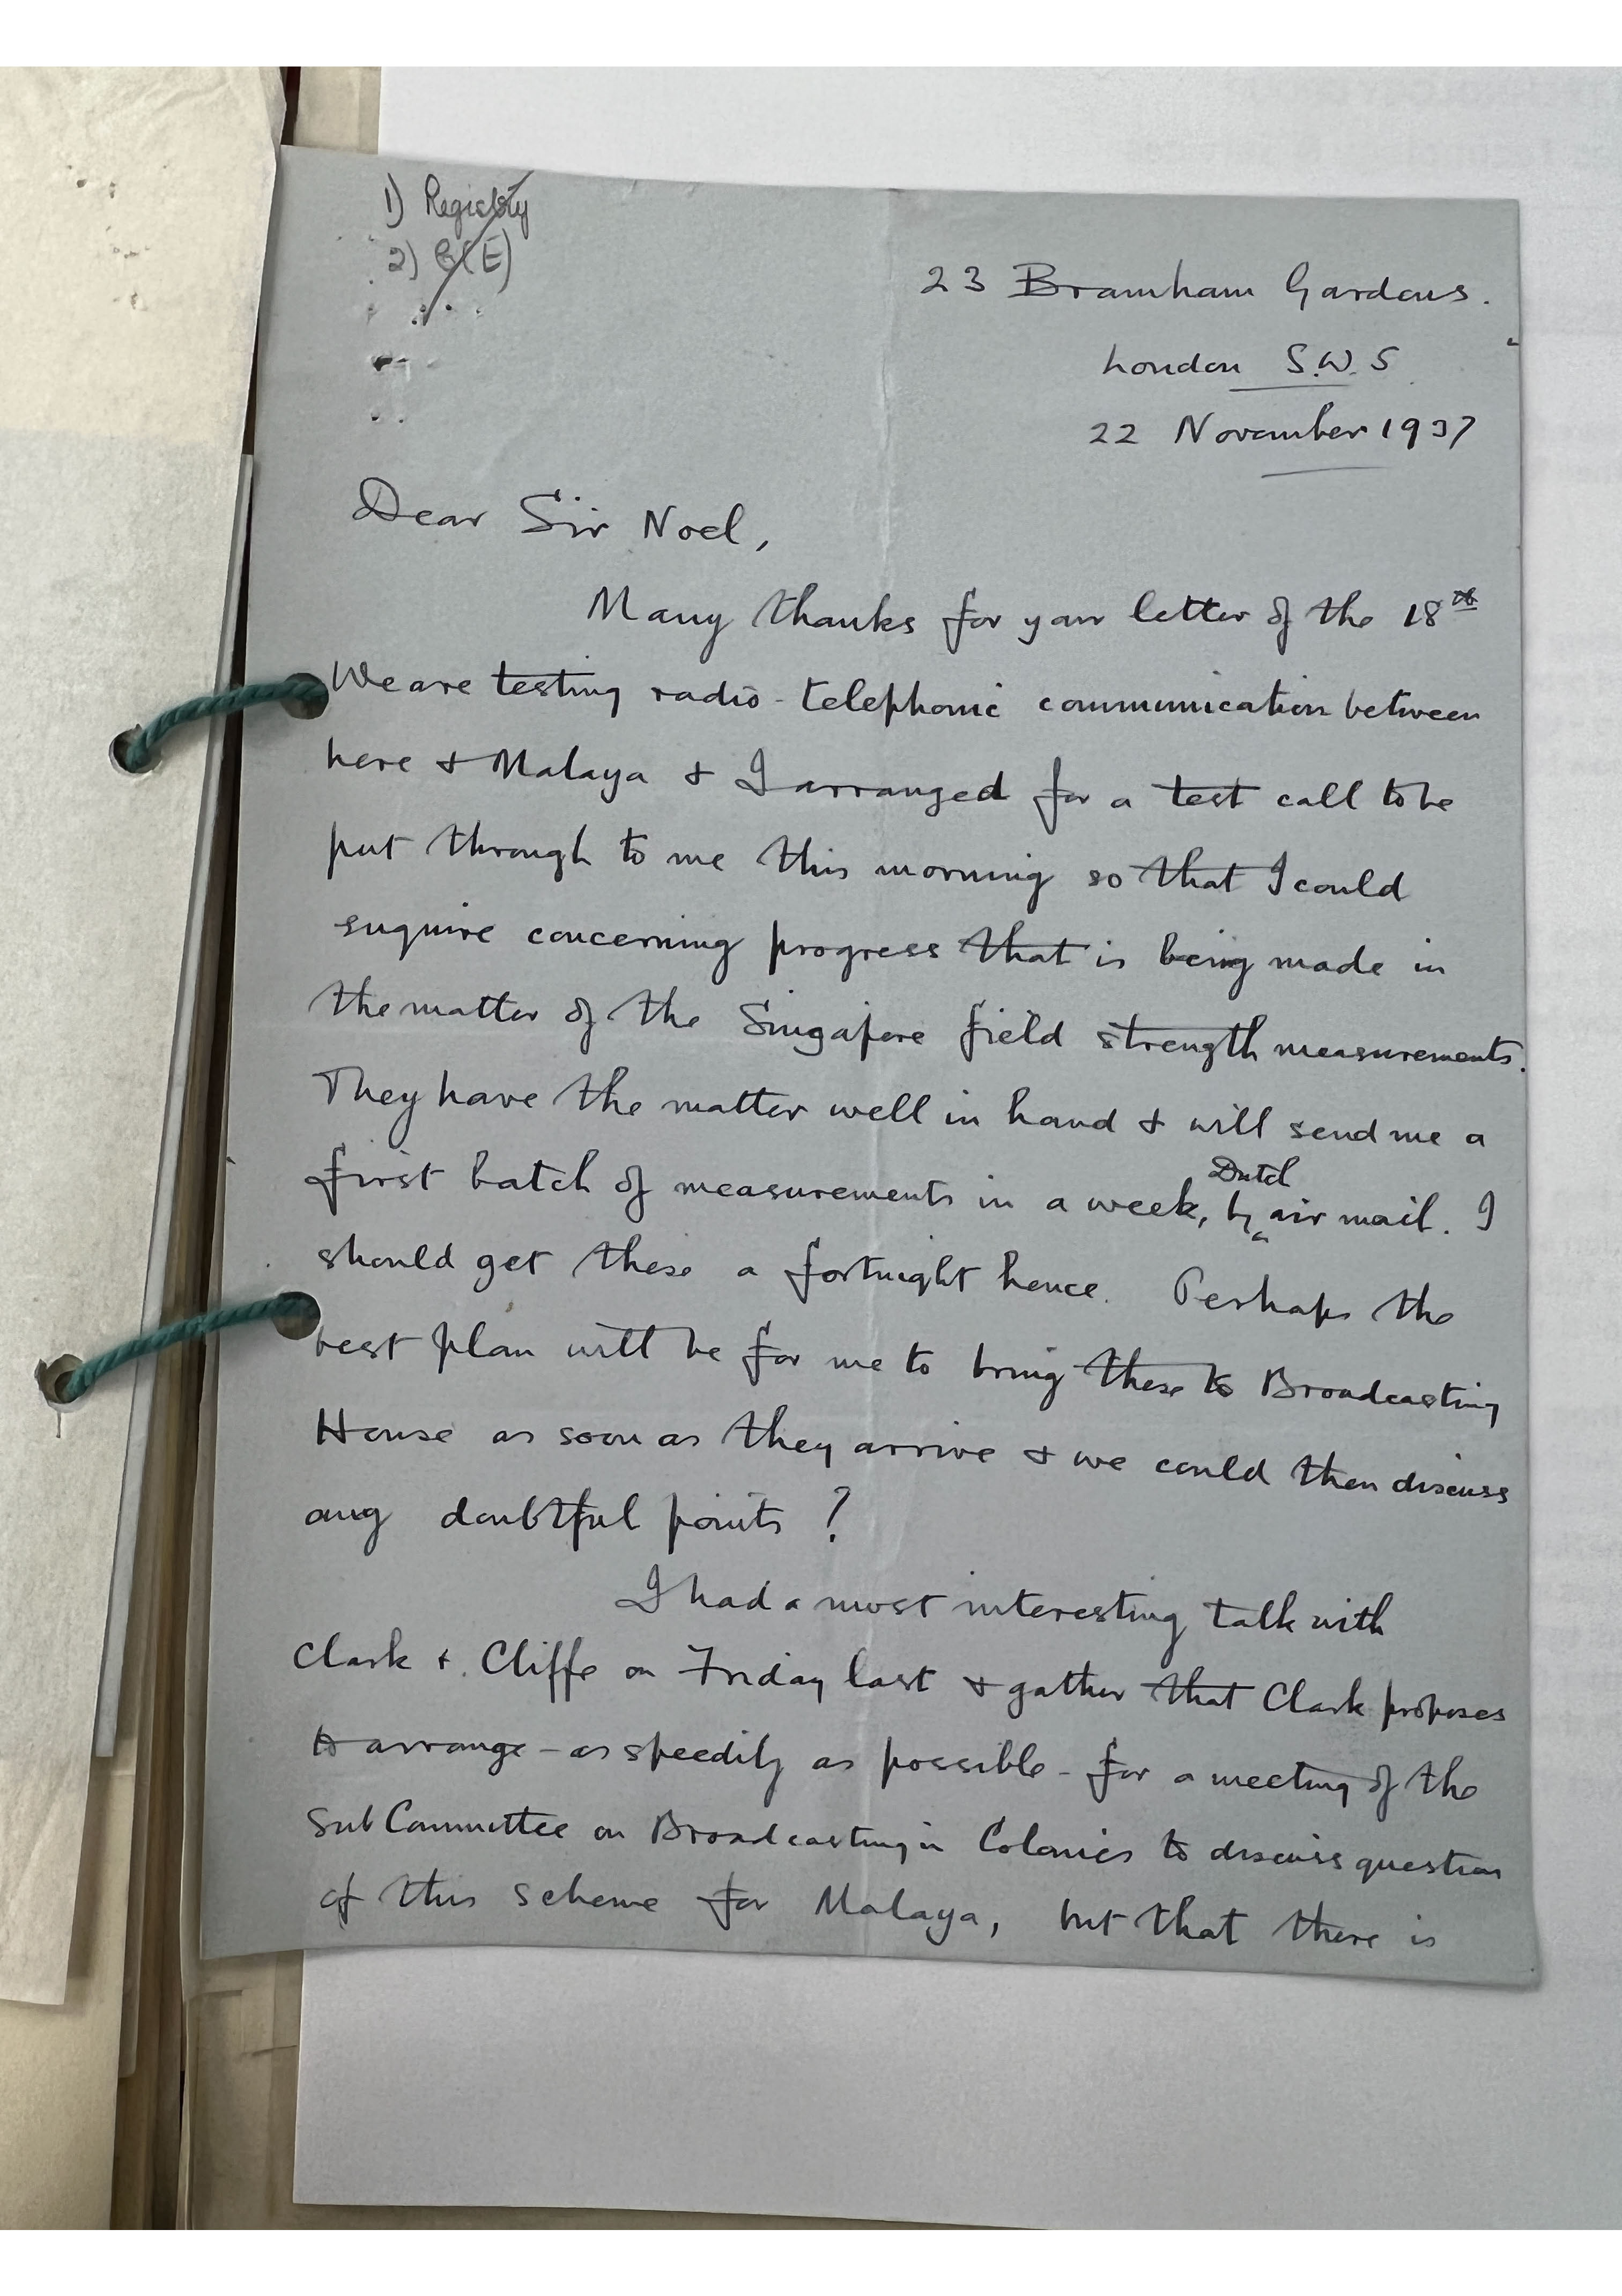 1) Registry
2) C(E)
23 Bramham Gardens.
London S.W. 5
22 November 1937
Dear Sir Noel,
Many thanks for your letter of the 18th
We are testing radio-telephonic communication between
here & Malaya & I arranged for a test call to be
put through to me this morning so that I could
enquire concerning progress that is being made in
the matter of the Singapore field strength measurements.
They have the matter well in hand & will send me a
first batch of measurements in a week, by Dutch air mail. I
should get these a fortnight hence. Perhaps the
best plan will be for me to bring these to Broadcasting
House as soon as they arrive & we could then discuss
any doubtful points ?
I had a most interesting talk with
Clark & Cliffe on Friday last & gather that Clark proposes
to arrange - as speedily as possible - for a meeting of the
Sub Committee on Broadcasting in Colonies to discuss question
of this scheme for Malaya, but that there is